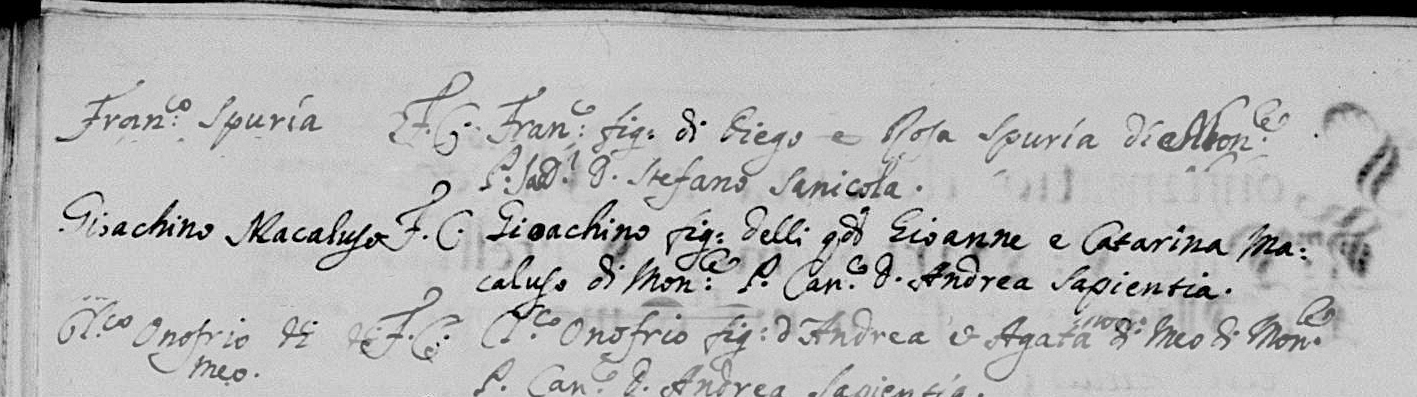 Fran.co Spuria F. C. Fran.co fig: di Diego e Rosa Spuria di Mon.le
P. Sad.l D. Stefano Sanicola.
Gioachino Macaluso F. C. Gioachino fig: delli qd Gioanne e Catarina Ma:
caluso di Mon.le P. Can.co D. Andrea Sapientia.
Cl.co Onofrio di F. C. Cl.co Onofrio fig: d'Andrea e Agata di Meo di Mon.le
Meo.
P. Can.co D. Andrea Sapientia.